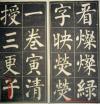 看燦燦綠
字映熒熒
一卷寅清
授三更子